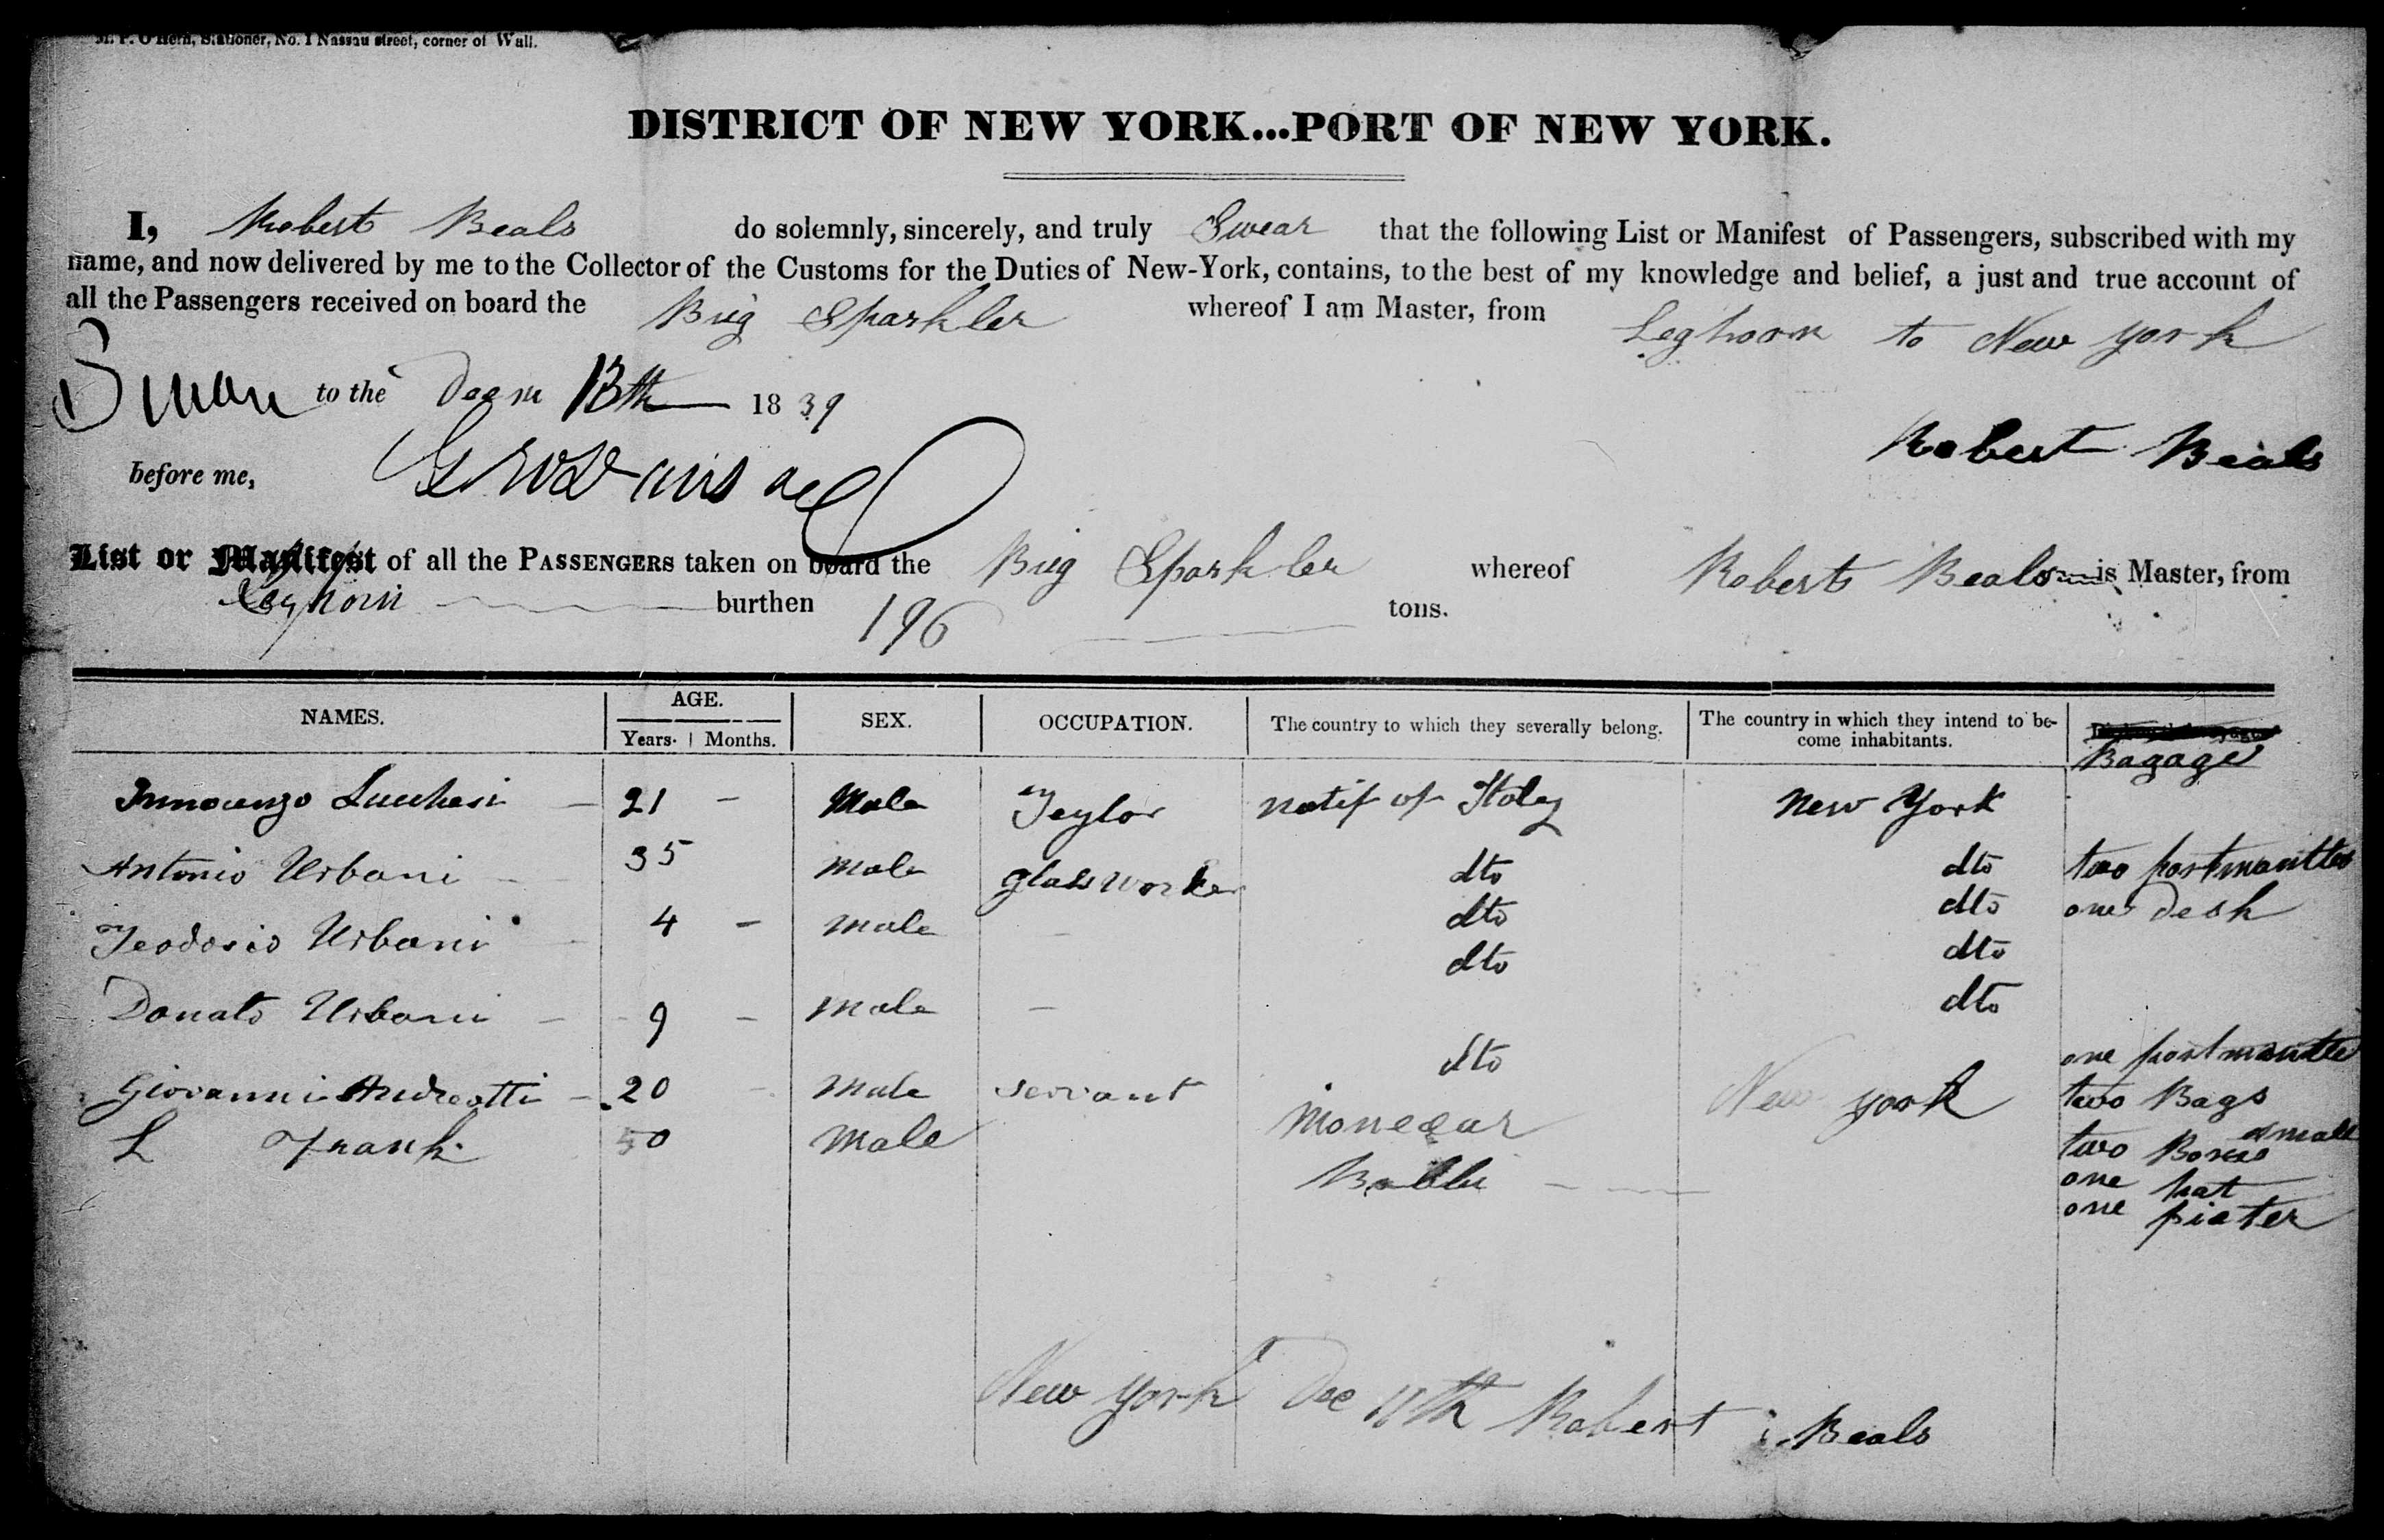 M. P. O'Hern, Stationer, No. 1 Nassau street, corner of Wall.
DISTRICT OF NEW YORK...PORT OF NEW YORK.
I, Robert Beals do solemnly, sincerely, and truly Swear that the following List or Manifest of Passengers, subscribed with my
name, and now delivered by me to the Collector of the Customs for the Duties of New-York, contains, to the best of my knowledge and belief, a just and true account of
all the Passengers received on board the Brig Sparkler whereof I am Master, from Leghorn to New york
to the 13th 1839
Robert Beals
before me,
List or Manifest of all the PASSENGERS taken on board the Brig Sparkler whereof Robert Beals is Master, from
Leghorn burthen 196 tons.
NAMES. AGE. SEX. OCCUPATION. The country to which they severally belong. The country in which they intend to be-
Years. Months. come inhabitants.
Bagage
Innocenzo Lucchesi 21 - Male Teylor natif of Italy New York
Antonio Urbani 35 Male glassworker dto dto two portmantles
Teodosio Urbani 4 - Male - dto dto one desk
Donato Urbani - 9 - Male - dto dto
dto
one portmantle
Giovanni Andreotti - 20 - Male servant dto New york two Bags
L Frank 50 Male two small Boxes
one hat
one
New york Dec Robert Beals